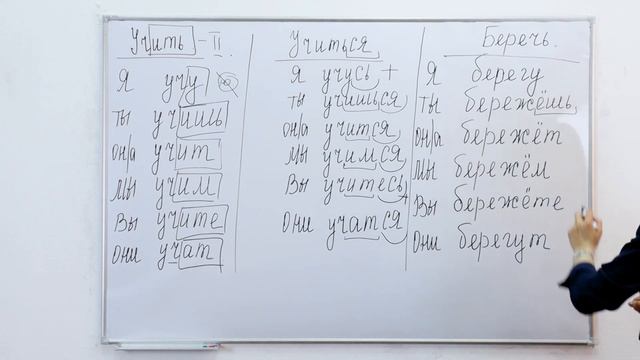 Учить – II
Я учу
ты учишь
он/а учит
Мы учим
Вы учите
они учат
Учиться
Я учусь +
ты учишься
он/а учится
Мы учимся
Вы учитесь
Они учатся
Беречь.
Я берегу
ты бережёшь
он/а бережёт
Мы бережём
Вы бережёте
Они берегут